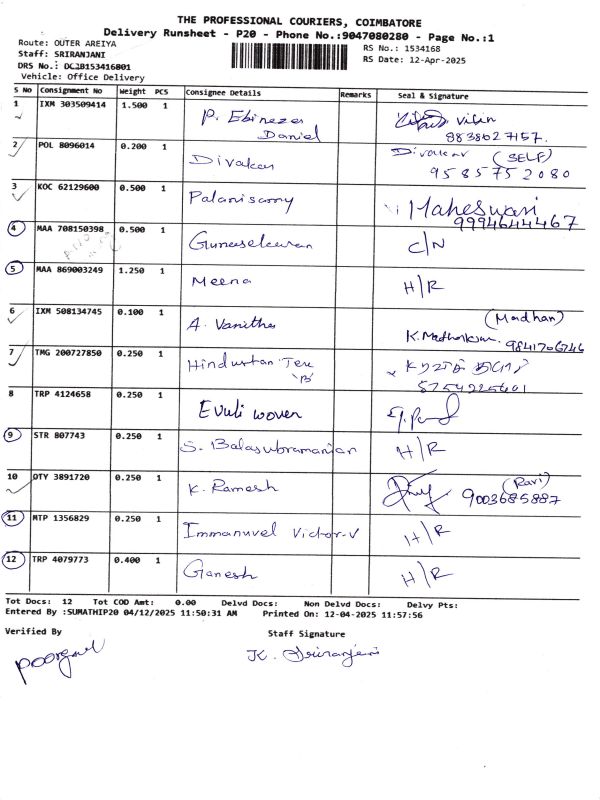 THE PROFESSIONAL COURIERS, COIMBATORE
Delivery Runsheet - P20 - Phone No.:9047080280 - Page No.:1
Route: OUTER AREIYA
RS No.: 1534168
Staff: SRIRANJANI
RS Date: 12-Apr-2025
DRS No.: DC2B153416801
Vehicle: Office Delivery
S No Consignment No Weight PCS Consignee Details Remarks Seal & Signature
1 IXM 303509414 1.500 1 P. Ebinezer Daniel
8838627157.
2 POL 8096014 0.200 1 Divakar Divakar (SELF)
9585752080
3 KOC 62129600 0.500 1 Palanisamy Maheswari
9994644467
4 MAA 708150398 0.500 1 Gunasekaran C/N
5 MAA 869003249 1.250 1 Meena H/R
6 IXM 508134745 0.100 1 A. Vanitha (Madhan)
9841706746
7 TMG 200727850 0.250 1 Hindustan Tex
'B' 8754225601
8 TRP 4124658 0.250 1 Evuli woven
9 STR 807743 0.250 1 S. Balasubramanian H/R
10 OTY 3891720 0.250 1 K. Ramesh (Ravi)
9003685887
11 MTP 1356829 0.250 1 Immanuvel Victor-V H/R
12 TRP 4079773 0.400 1 Ganesh H/R
Tot Docs: 12 Tot COD Amt: 0.00 Delvd Docs: Non Delvd Docs: Delvy Pts:
Entered By :SUMATHIP20 04/12/2025 11:50:31 AM Printed On: 12-04-2025 11:57:56
Verified By Staff Signature
K. Sriranjani